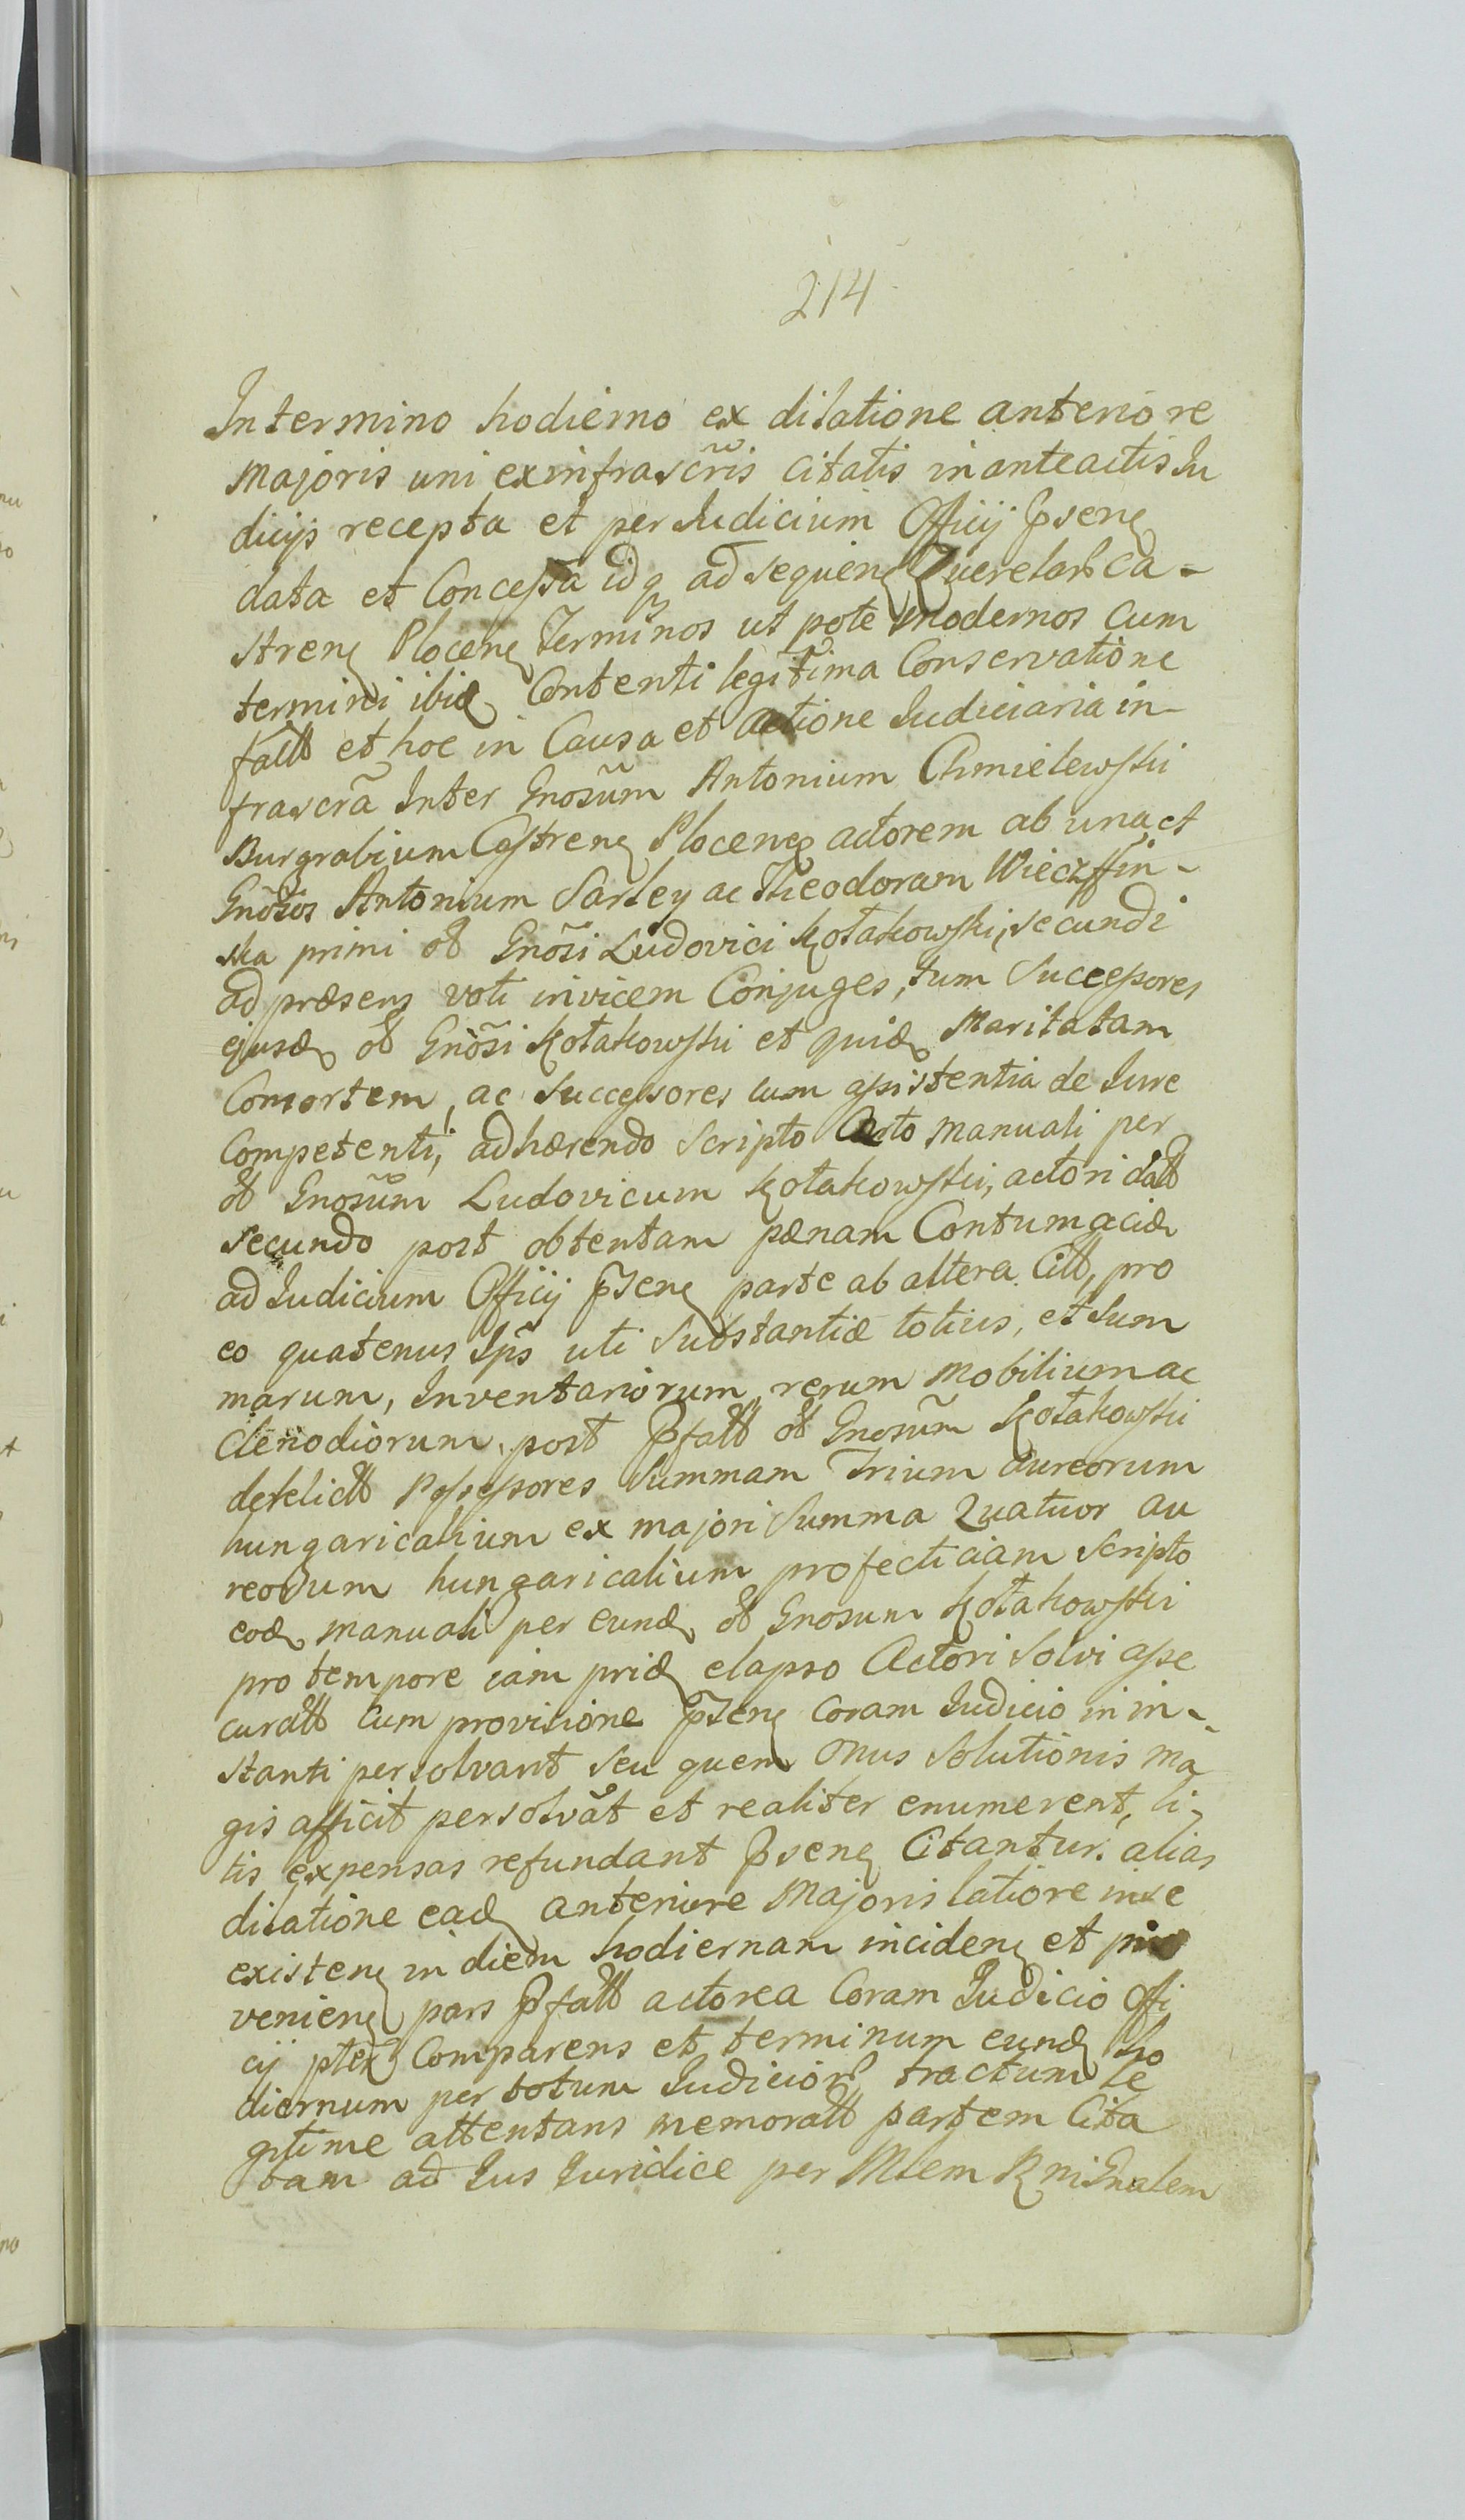 214
Intermino hodierno ex dilatione anteriore
Majoris uni exinfrascr̃is citatis in anteactis Iu
dicijs recepta et per Iudicium Officij Pñsens
data et Concessa idq ad sequens Querelar Ca-
strens Plocens Terminos ut pote modernos cum
termini ibid Contenti legitima Conservatione
fatt et hoc in Causa et actione Iudiciaria in-
frascrã Inter Gnosũm Antonium Chmielewski
Burgrabium Castrens Plocens actorem ab una et
Gnõsos Antonium Sarley ac Theodoram Wieczffin-
ska primi ol Gnõsi Ludovici Kołakowski, secundi
ad præsens voti invicem Conjuges, tum Successores
ejusd ol Gnõsi Kołakowski et quid Maritatam
Consortem, ac Successores cum assistentia de Iure
Competenti, adhærendo Scripto Certo manuali per
ol Gnosũm Ludovicum Kołakowski, actori datt
Secundo post obtentam pænam Contumaciæ
ad Iudicium Officij Pñsens parte ab altera Citt, pro
eo quatenus Ips̃ uti Substantiæ totius, et Sum
marum, Inventariorum, rerum Mobilium ac
Clenodiorum, post Pfatt ol Gnosũm Kołakowski
derelictt Possessores Summam Trium aureorum
hungaricalium ex majori Summa Quatuor au
reorum hungaricalium profecticiam Scripto
eod manuali per eund ol Gnosum Kołakowski
pro tempore iam prid elapso Actori Solvi asse
curatt Cum provisione Pñsens Coram Iudicio in in-
stanti persolvant seu quem Onus Solutionis ma
gis afficit persolvat et realiter enumerent, li-
tis expensas refundant Pñsens Citantur. alias
dilatione ead anteriore Majoris latiore in se
existens in diem hodiernam incidens et
veniens pars Pfatt actorea Coram Iudicio Offi
cij Comparens et terminum eund ho
diernum per totum Iudicior tractum le
gitime attentans memoratt partem Cita
tam ad Ius Iuridice per Mlem R